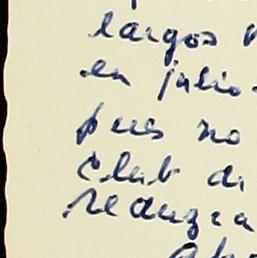 largos
en julio
pues no
club di
reduzca